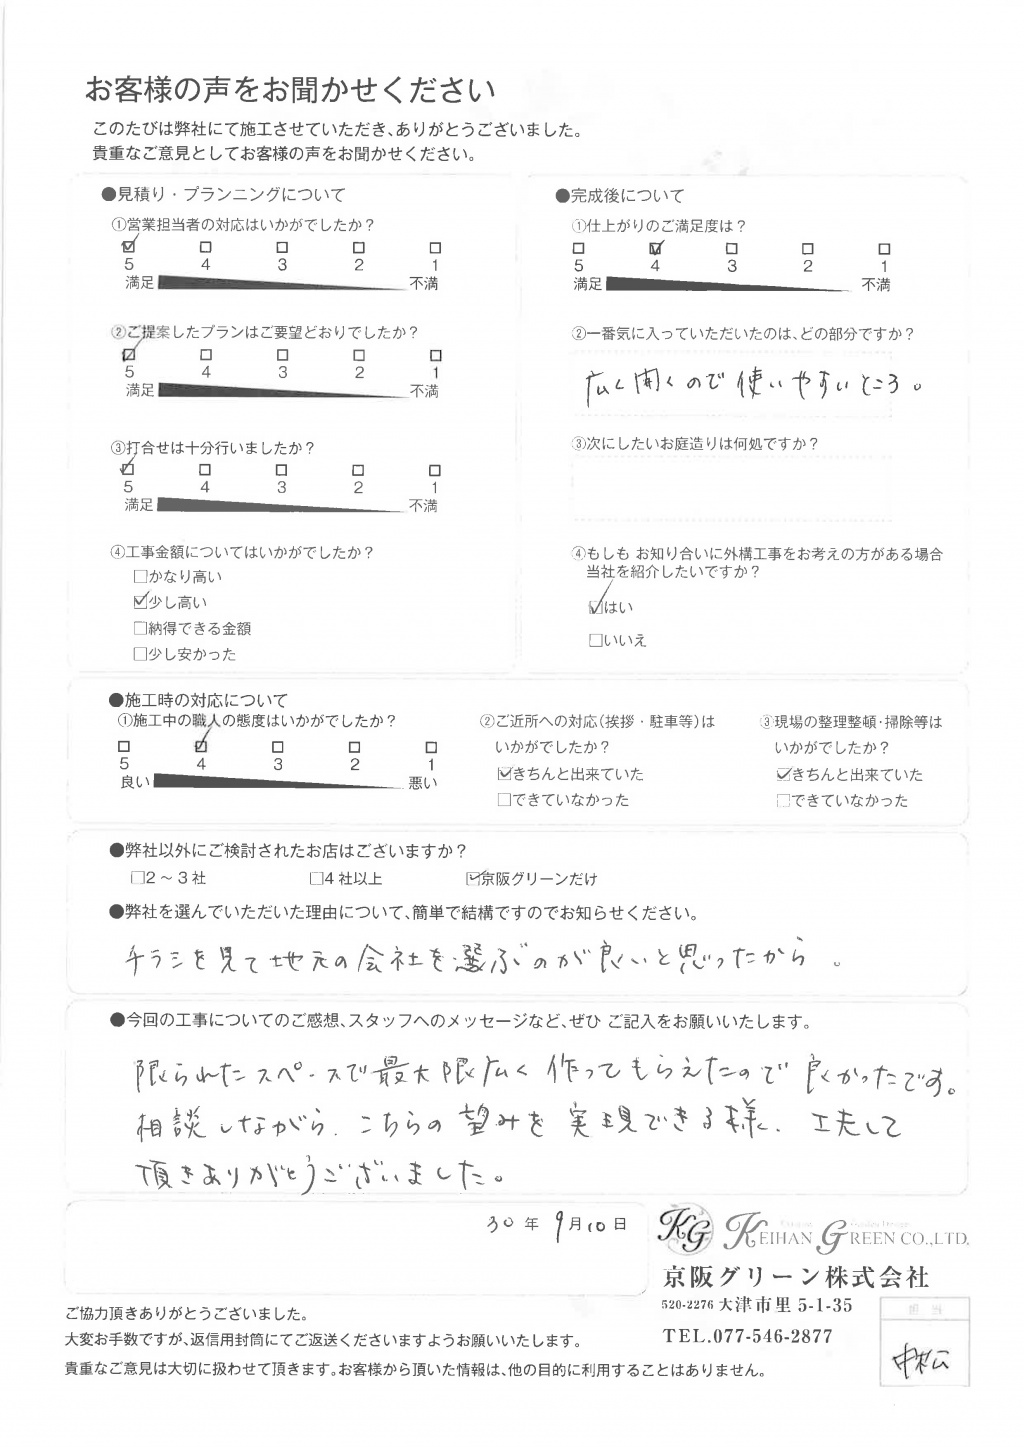 お客様の声をお聞かせください
このたびは弊社にて施工させていただき、ありがとうございました。
貴重なご意見としてお客様の声をお聞かせください。
●見積り・プランニングについて
①営業担当者の対応はいかがでしたか？
☑ □ □ □ □
5 4 3 2 1
満足 不満
②ご提案したプランはご要望どおりでしたか？
☑ □ □ □ □
5 4 3 2 1
満足 不満
③打合せは十分行いましたか？
☑ □ □ □ □
5 4 3 2 1
満足 不満
④工事金額についてはいかがでしたか？
□かなり高い
☑少し高い
□納得できる金額
□少し安かった
●完成後について
①仕上がりのご満足度は？
□ ☑ □ □ □
5 4 3 2 1
満足 不満
②一番気に入っていただいたのは、どの部分ですか？
広く開くので使いやすいところ。
③次にしたいお庭造りは何処ですか？
④もしも お知り合いに外構工事をお考えの方がある場合
当社を紹介したいですか？
☑はい
□いいえ
●施工時の対応について
①施工中の職人の態度はいかがでしたか？
□ ☑ □ □ □
5 4 3 2 1
良い 悪い
②ご近所への対応（挨拶・駐車等）は
いかがでしたか？
☑きちんと出来ていた
□できていなかった
③現場の整理整頓・掃除等は
いかがでしたか？
☑きちんと出来ていた
□できていなかった
●弊社以外にご検討されたお店はございますか？
□2～3社 □4社以上 ☑京阪グリーンだけ
●弊社を選んでいただいた理由について、簡単で結構ですのでお知らせください。
チラシを見て地元の会社を選ぶのが良いと思ったから。
●今回の工事についてのご感想、スタッフへのメッセージなど、ぜひ ご記入をお願いいたします。
限られたスペースで最大限広く作ってもらえたので良かったです。
相談しながら、こちらの望みを実現できる様に、工夫して
頂きありがとうございました。
30年9月10日
KG KEIHAN GREEN CO.,LTD.
京阪グリーン株式会社
520-2276 大津市里 5-1-35
TEL.077-546-2877
担当
中松
ご協力頂きありがとうございました。
大変お手数ですが、返信用封筒にてご返送くださいますようお願いいたします。
貴重なご意見は大切に扱わせて頂きます。お客様から頂いた情報は、他の目的に利用することはありません。